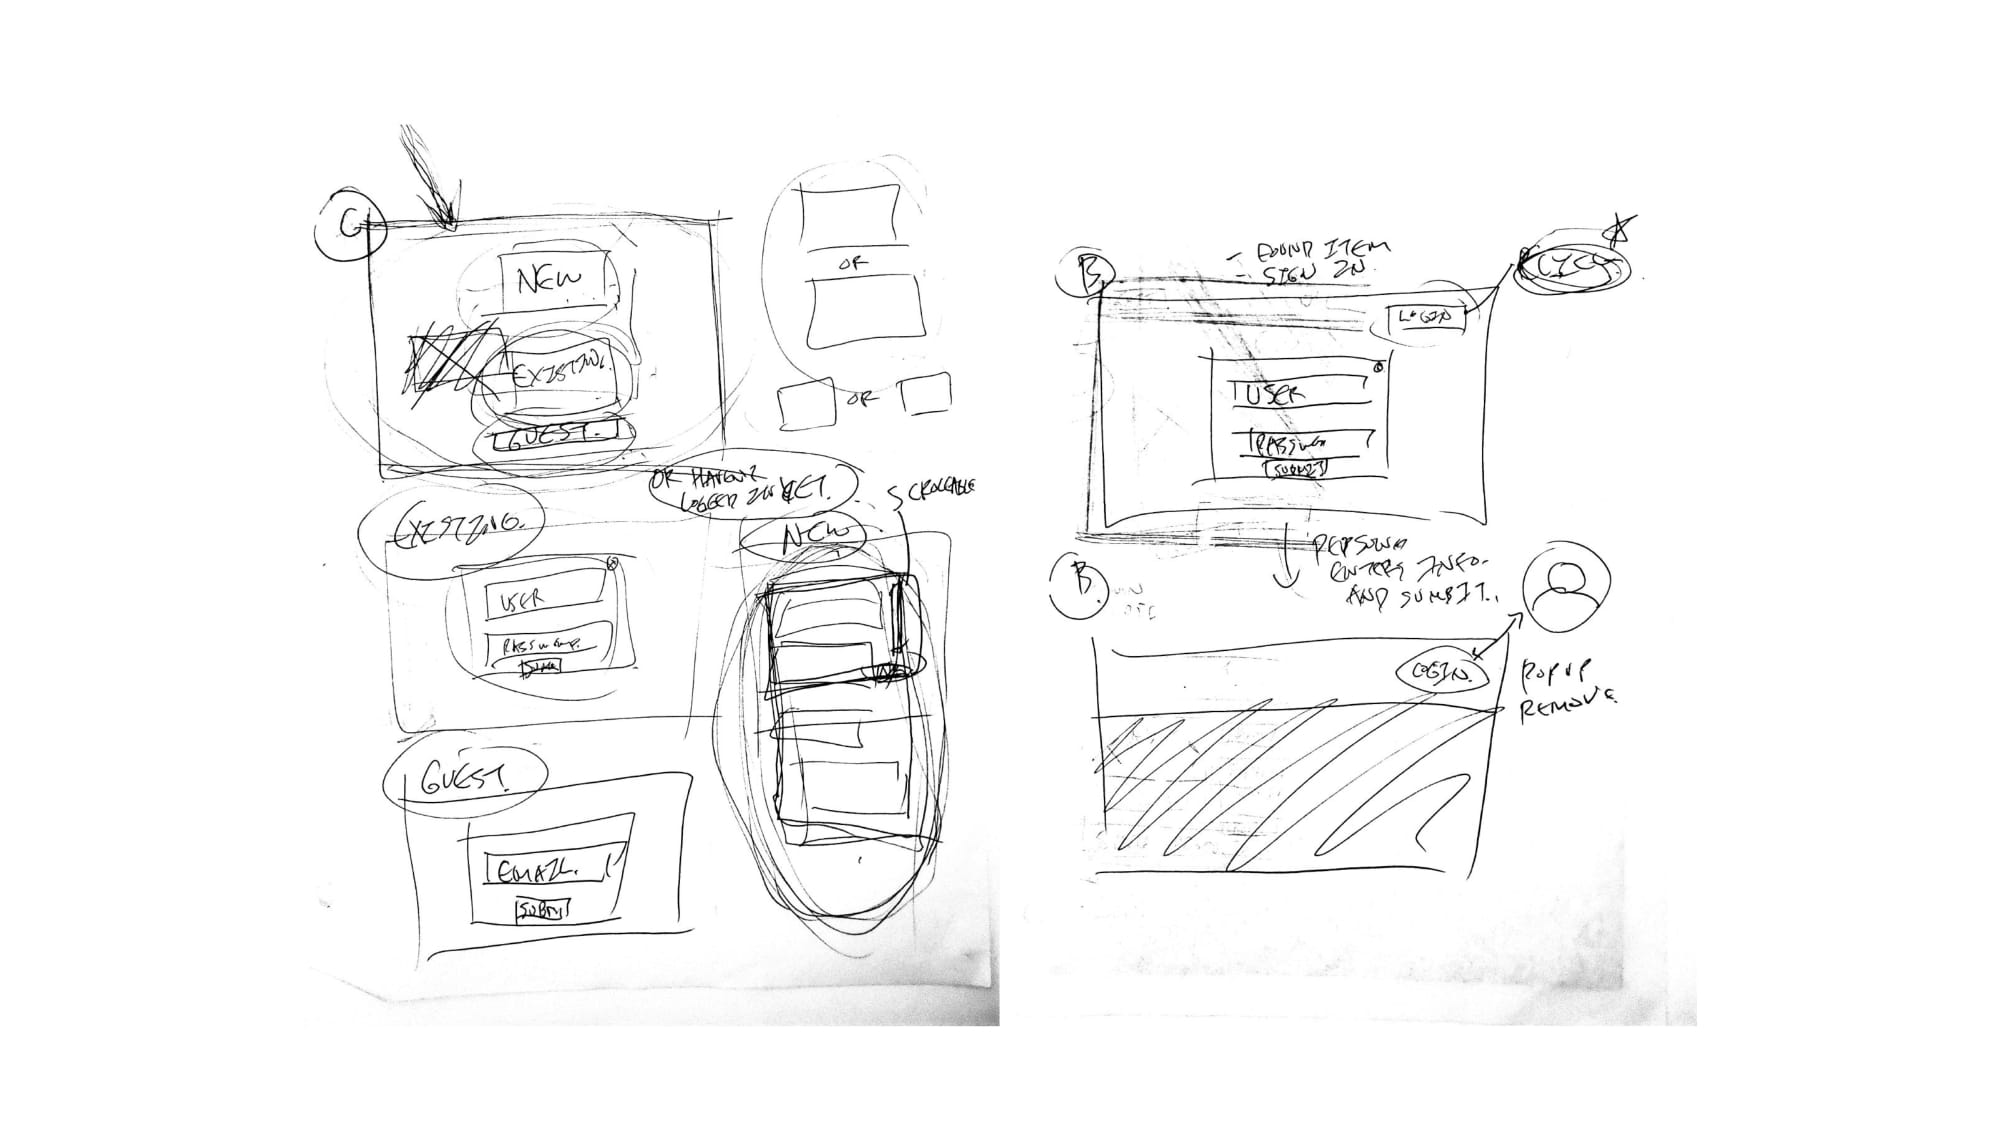 C
NEW
EXISTING.
GUEST.
OR
OR
OR HAVEN'T
LOGGED IN YET.
SCROLLABLE
EXISTING.
USER
NEW
GUEST.
EMAIL.
SUBMIT
B
- FOUND ITEM
- SIGN IN.
LOGIN
USER
SUBMIT
PERSONA
ENTERS INFO.
AND SUMBIT..
B.
LOGIN.
POPUP
REMOVE